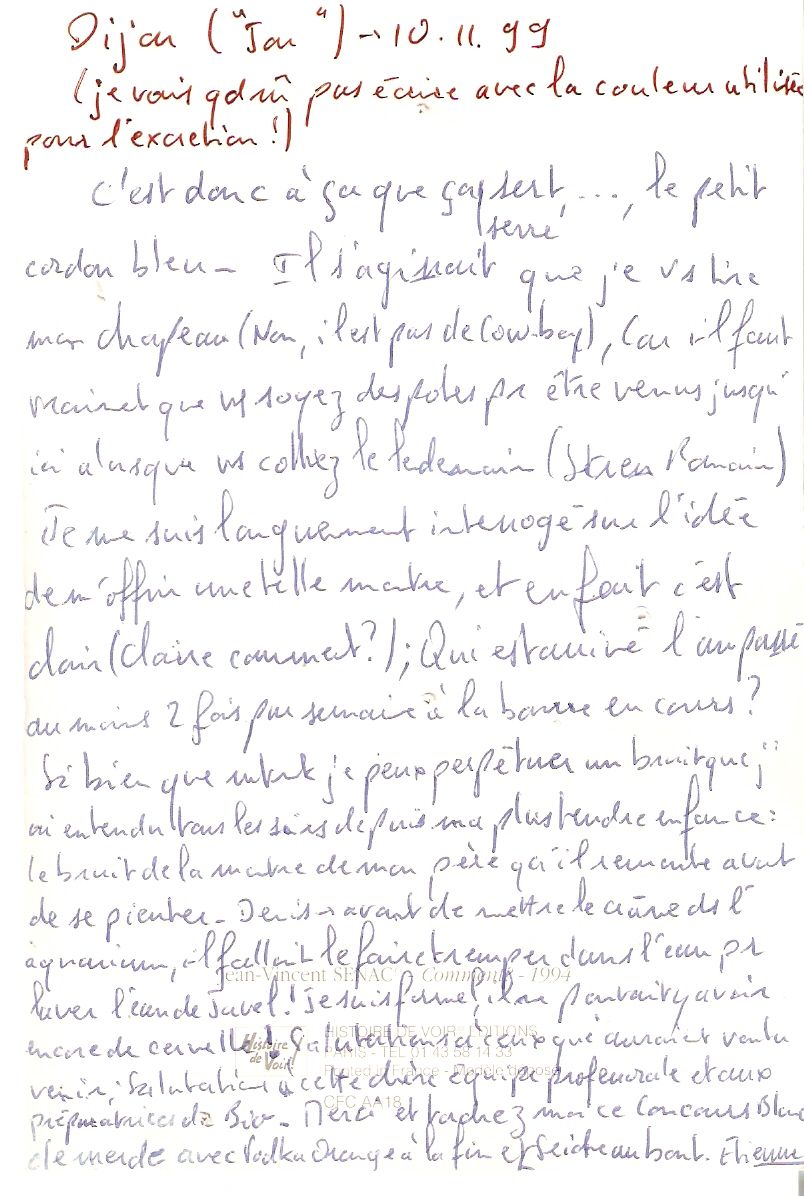 Dijon ("Jon") → 10.11.99
(je vais qd mm pas écrire avec la couleur utilisée
pour l'excrétion !)
C'est donc à ça que ça sert, ..., le petit
serre
cordon bleu - Il s'agissait que je vs tire
mon chapeau (Non, il est pas de Cow-boy), Car il faut
vraiment que vs soyez des potes pr être venus jusqu'
ici alors que vs colliez le lendemain (Steren Romain)
Je me suis longuement interrogé sur l'idée
de m'offrir une telle montre, et en fait c'est
clair (Claire comment ?) ; Qui est arrivé l'an passé
au moins 2 fois par semaine à la bourre en cours ?
Si bien que je peux perpétuer un bruit que j'
ai entendu tous les soirs depuis ma plus tendre enfance :
le bruit de la montre de mon père qu'il remonte avant
de se pieuter - Denis → avant de mettre le crâne ds l'
aquarium, il fallait le faire tremper dans l'eau pr
Jean-Vincent SÉNAC - Comment - 1994
laver l'eau de Javel ! Je suis formel, il pouvait y avoir
HISTOIRE DE VOIR EDITIONS
encore de cervelle ! Salutations à ceux qui auraient voulu
Histoire de Voir!
PARIS - TEL 01 43 58 14 33
Printed in France - Modèle déposé
venir, Salutations à cette chère équipe professorale et aux
CFC AA18
préparatrices de Bio - Merci et torchez moi ce Concours Blanc
de merde avec Vodka Orange à la fin et au bout. Etienne